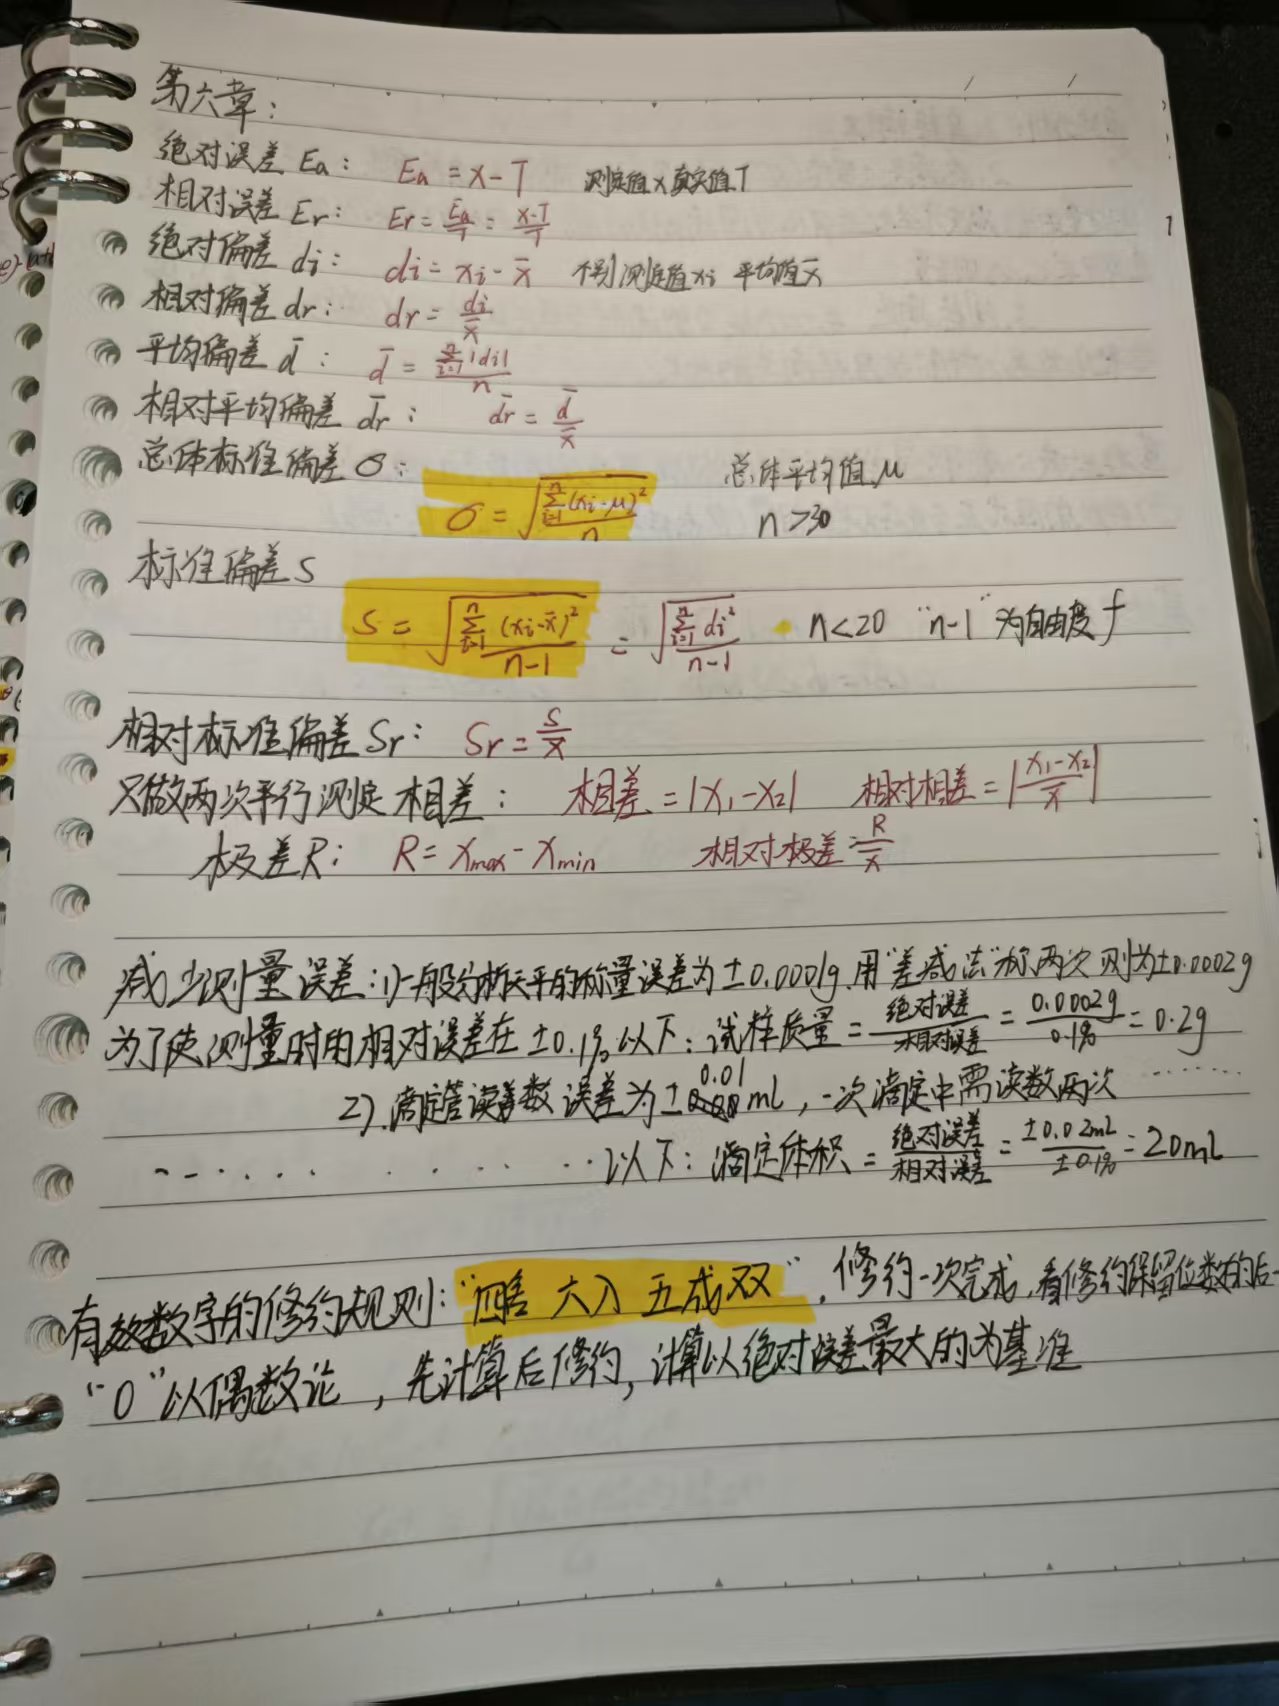 第六章：
绝对误差 Ea： Ea = x - T 测定值x 真实值T
相对误差 Er： Er = Ea/T = x-T/T
绝对偏差 di： di = xi - x̄ 个别测定值xi 平均值x̄
相对偏差 dr： dr = di/x̄
平均偏差 d̄： d̄ = Σ(i=1→n)|di|/n
相对平均偏差 d̄r： d̄r = d̄/x̄
总体标准偏差 σ： 总体平均值μ
σ = √(Σ(i=1→n)(xi-μ)²/n) n>30
标准偏差S
S = √(Σ(i=1→n)(xi-x̄)²/n-1) = √(Σ(i=1→n)di²/n-1) n<20 "n-1"为自由度f
相对标准偏差Sr： Sr = S/x̄
只做两次平行测定 相差： 相差 = |x₁-x₂| 相对相差 = |x₁-x₂/x̄|
极差R： R = xmax - xmin 相对极差 = R/x̄
减少测量误差：1)一般分析天平的称量误差为±0.0001g，用"差减法"称两次则为±0.0002g
为了使测量时的相对误差在±0.1%以下：试样质量 = 绝对误差/相对误差 = 0.0002g/0.1% = 0.2g
2).滴定管读数误差为±0.01ml，一次滴定中需读数两次 ......
......以下：滴定体积 = 绝对误差/相对误差 = ±0.02ml/±0.1% = 20ml
有效数字的修约规则："四舍 六入 五成双"，修约一次完成，看修约保留位数的后一
"0"以偶数论，先计算后修约，计算以绝对误差最大的为基准